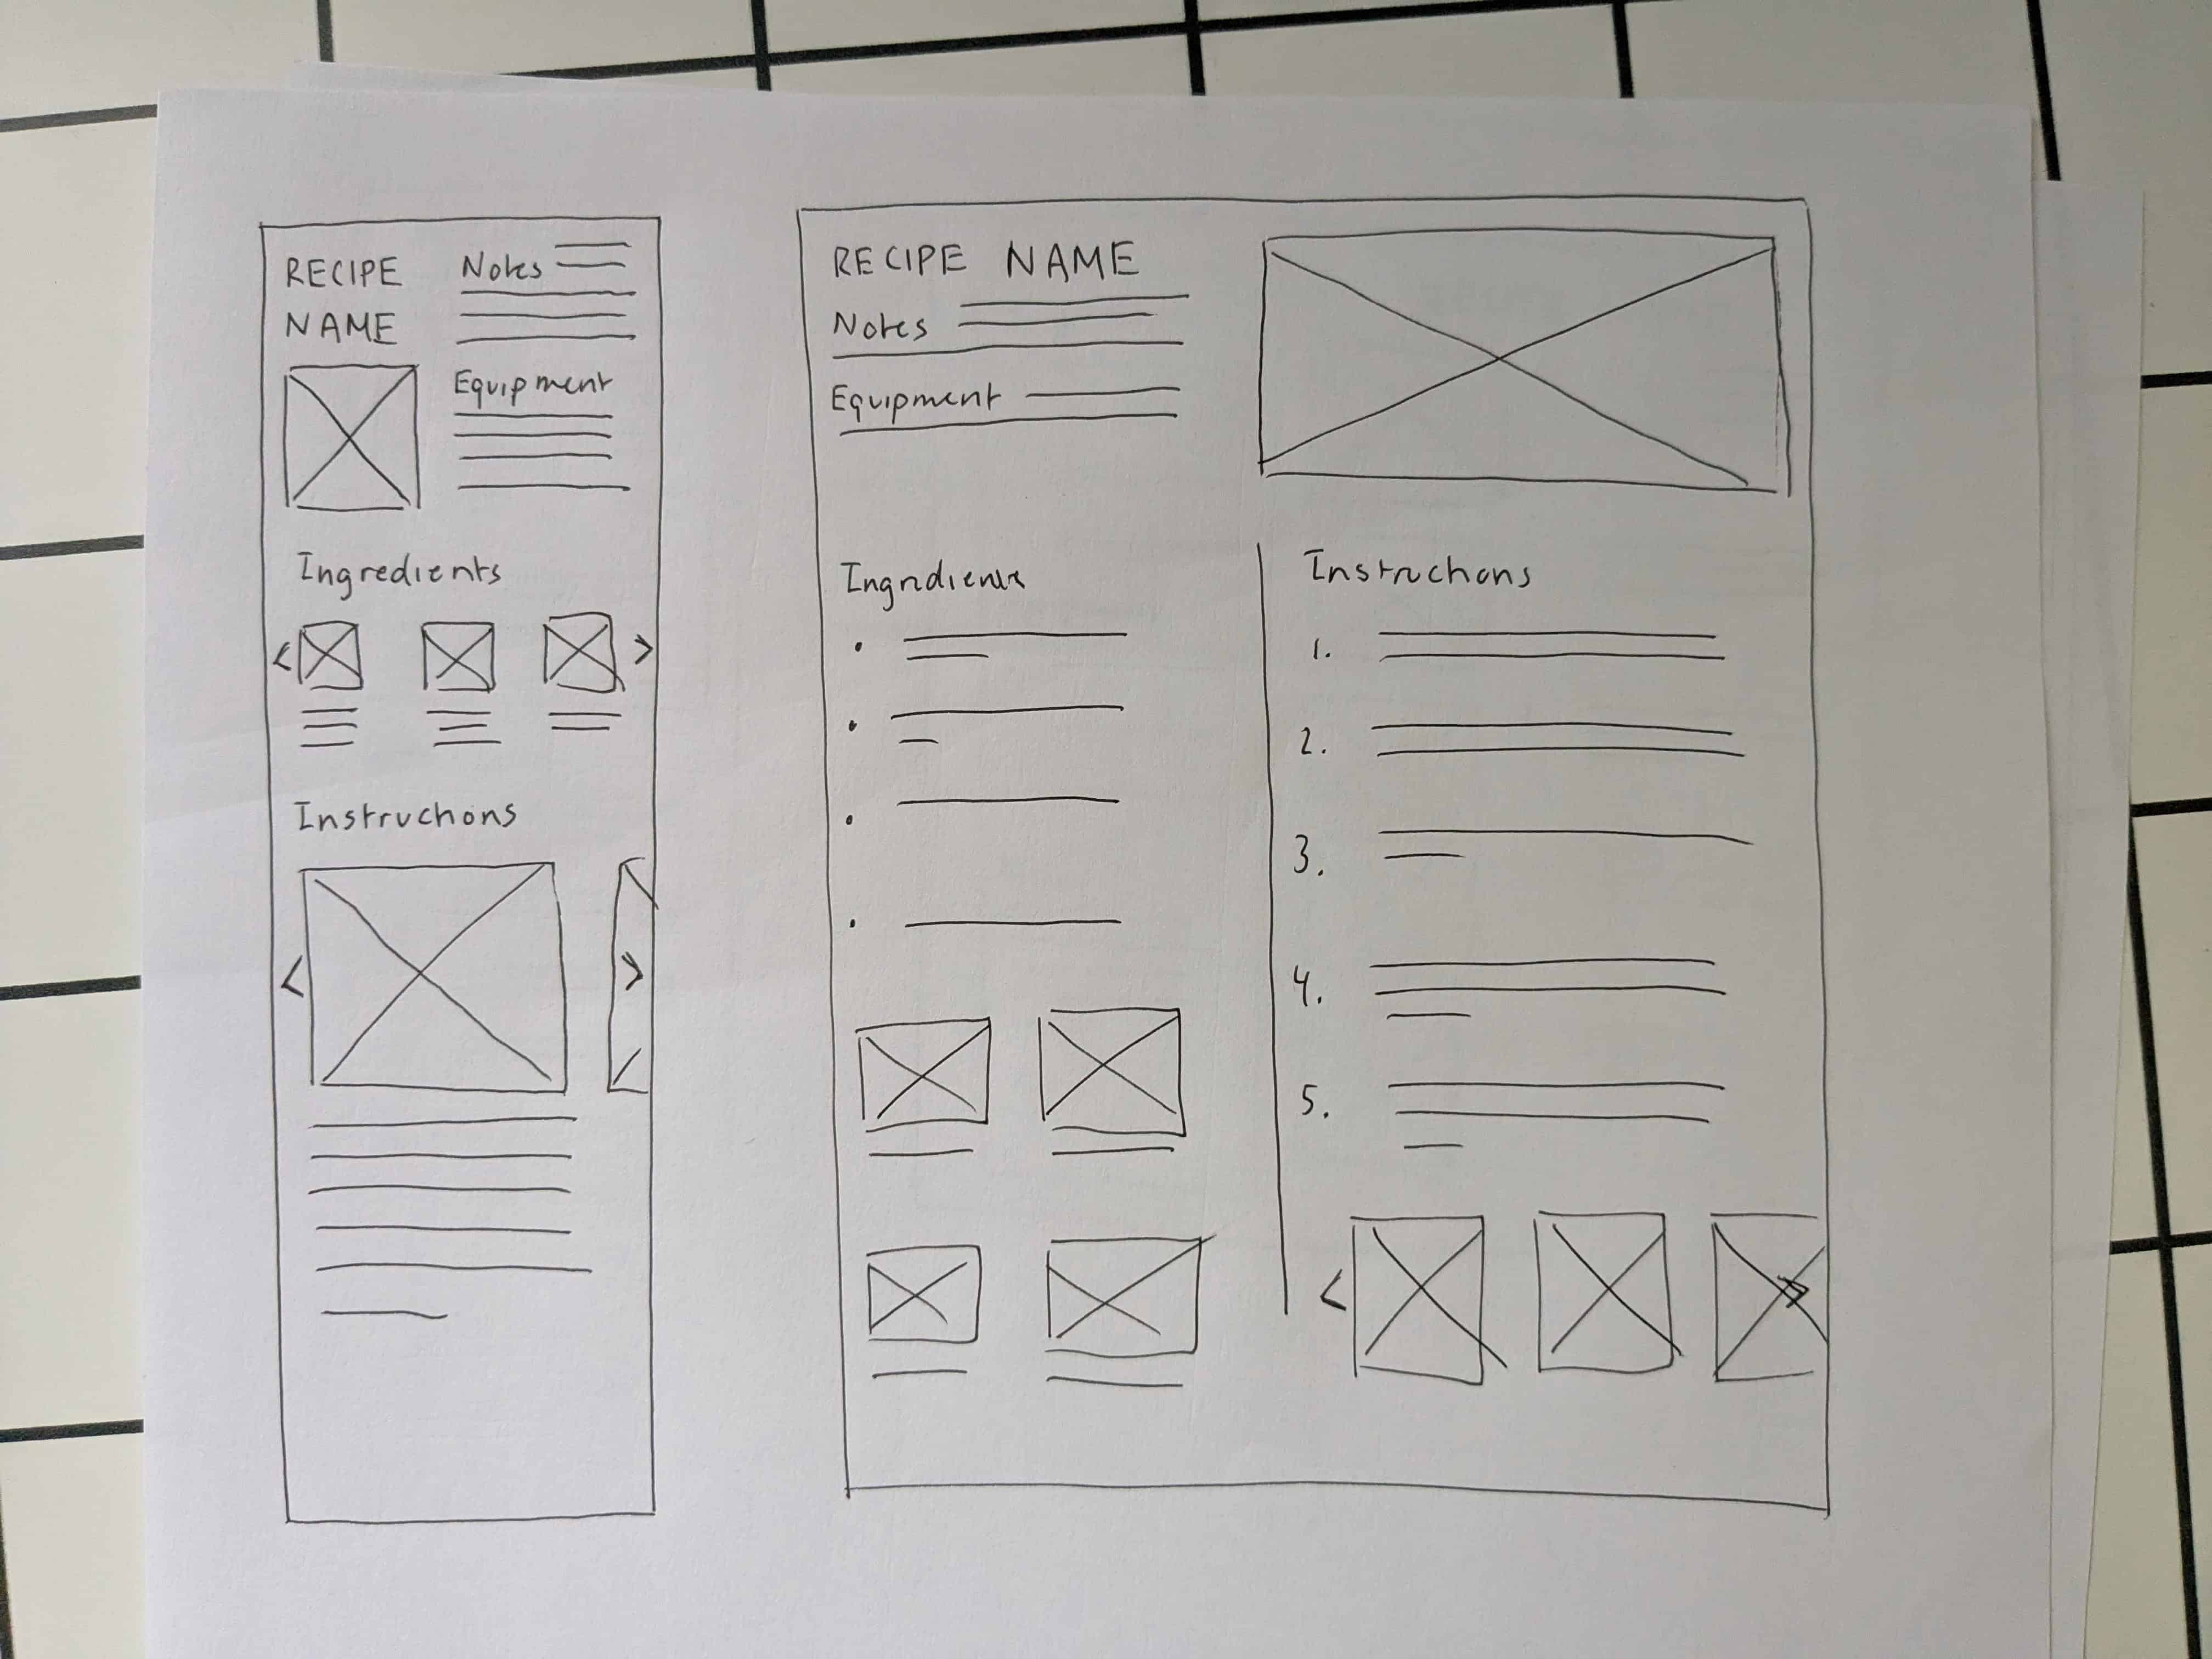 RECIPE
NAME
Notes
Equipment
Ingredients
Instructions
RECIPE NAME
Notes
Equipment
Ingredients
Instructions
1.
2.
3.
4.
5.